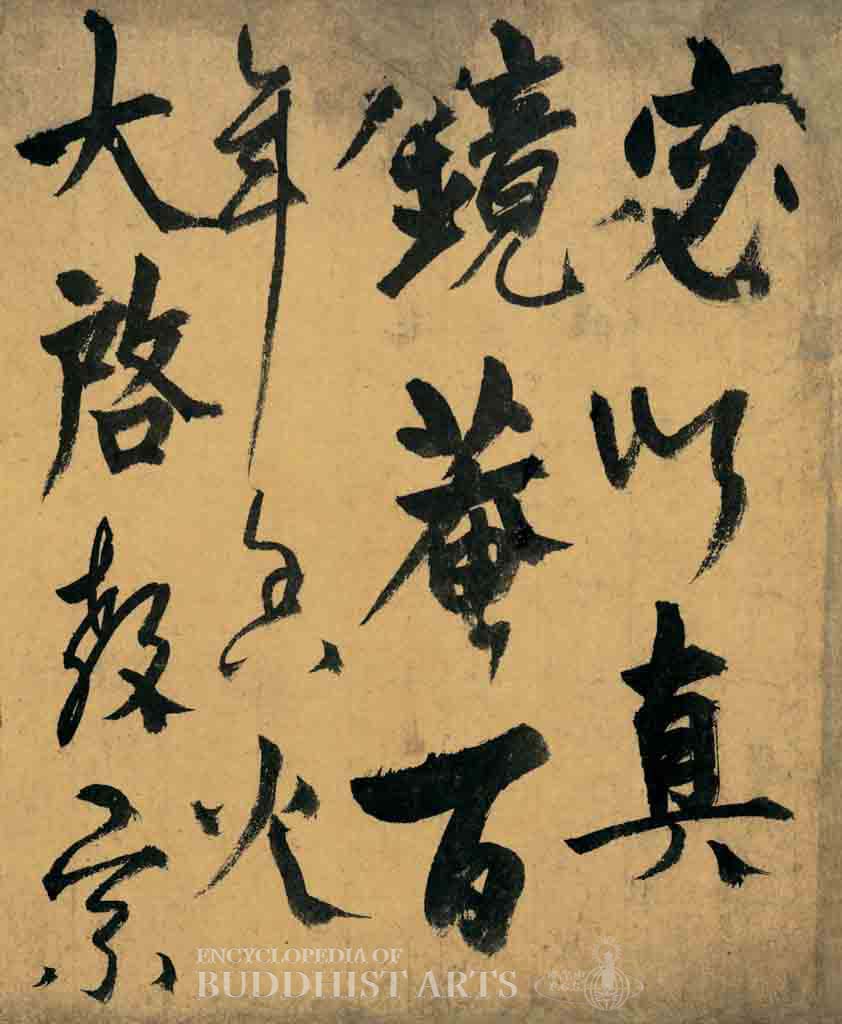 以真
鏡菴百
年香火
大啓教宗
ENCYCLOPEDIA OF
BUDDHIST ARTS